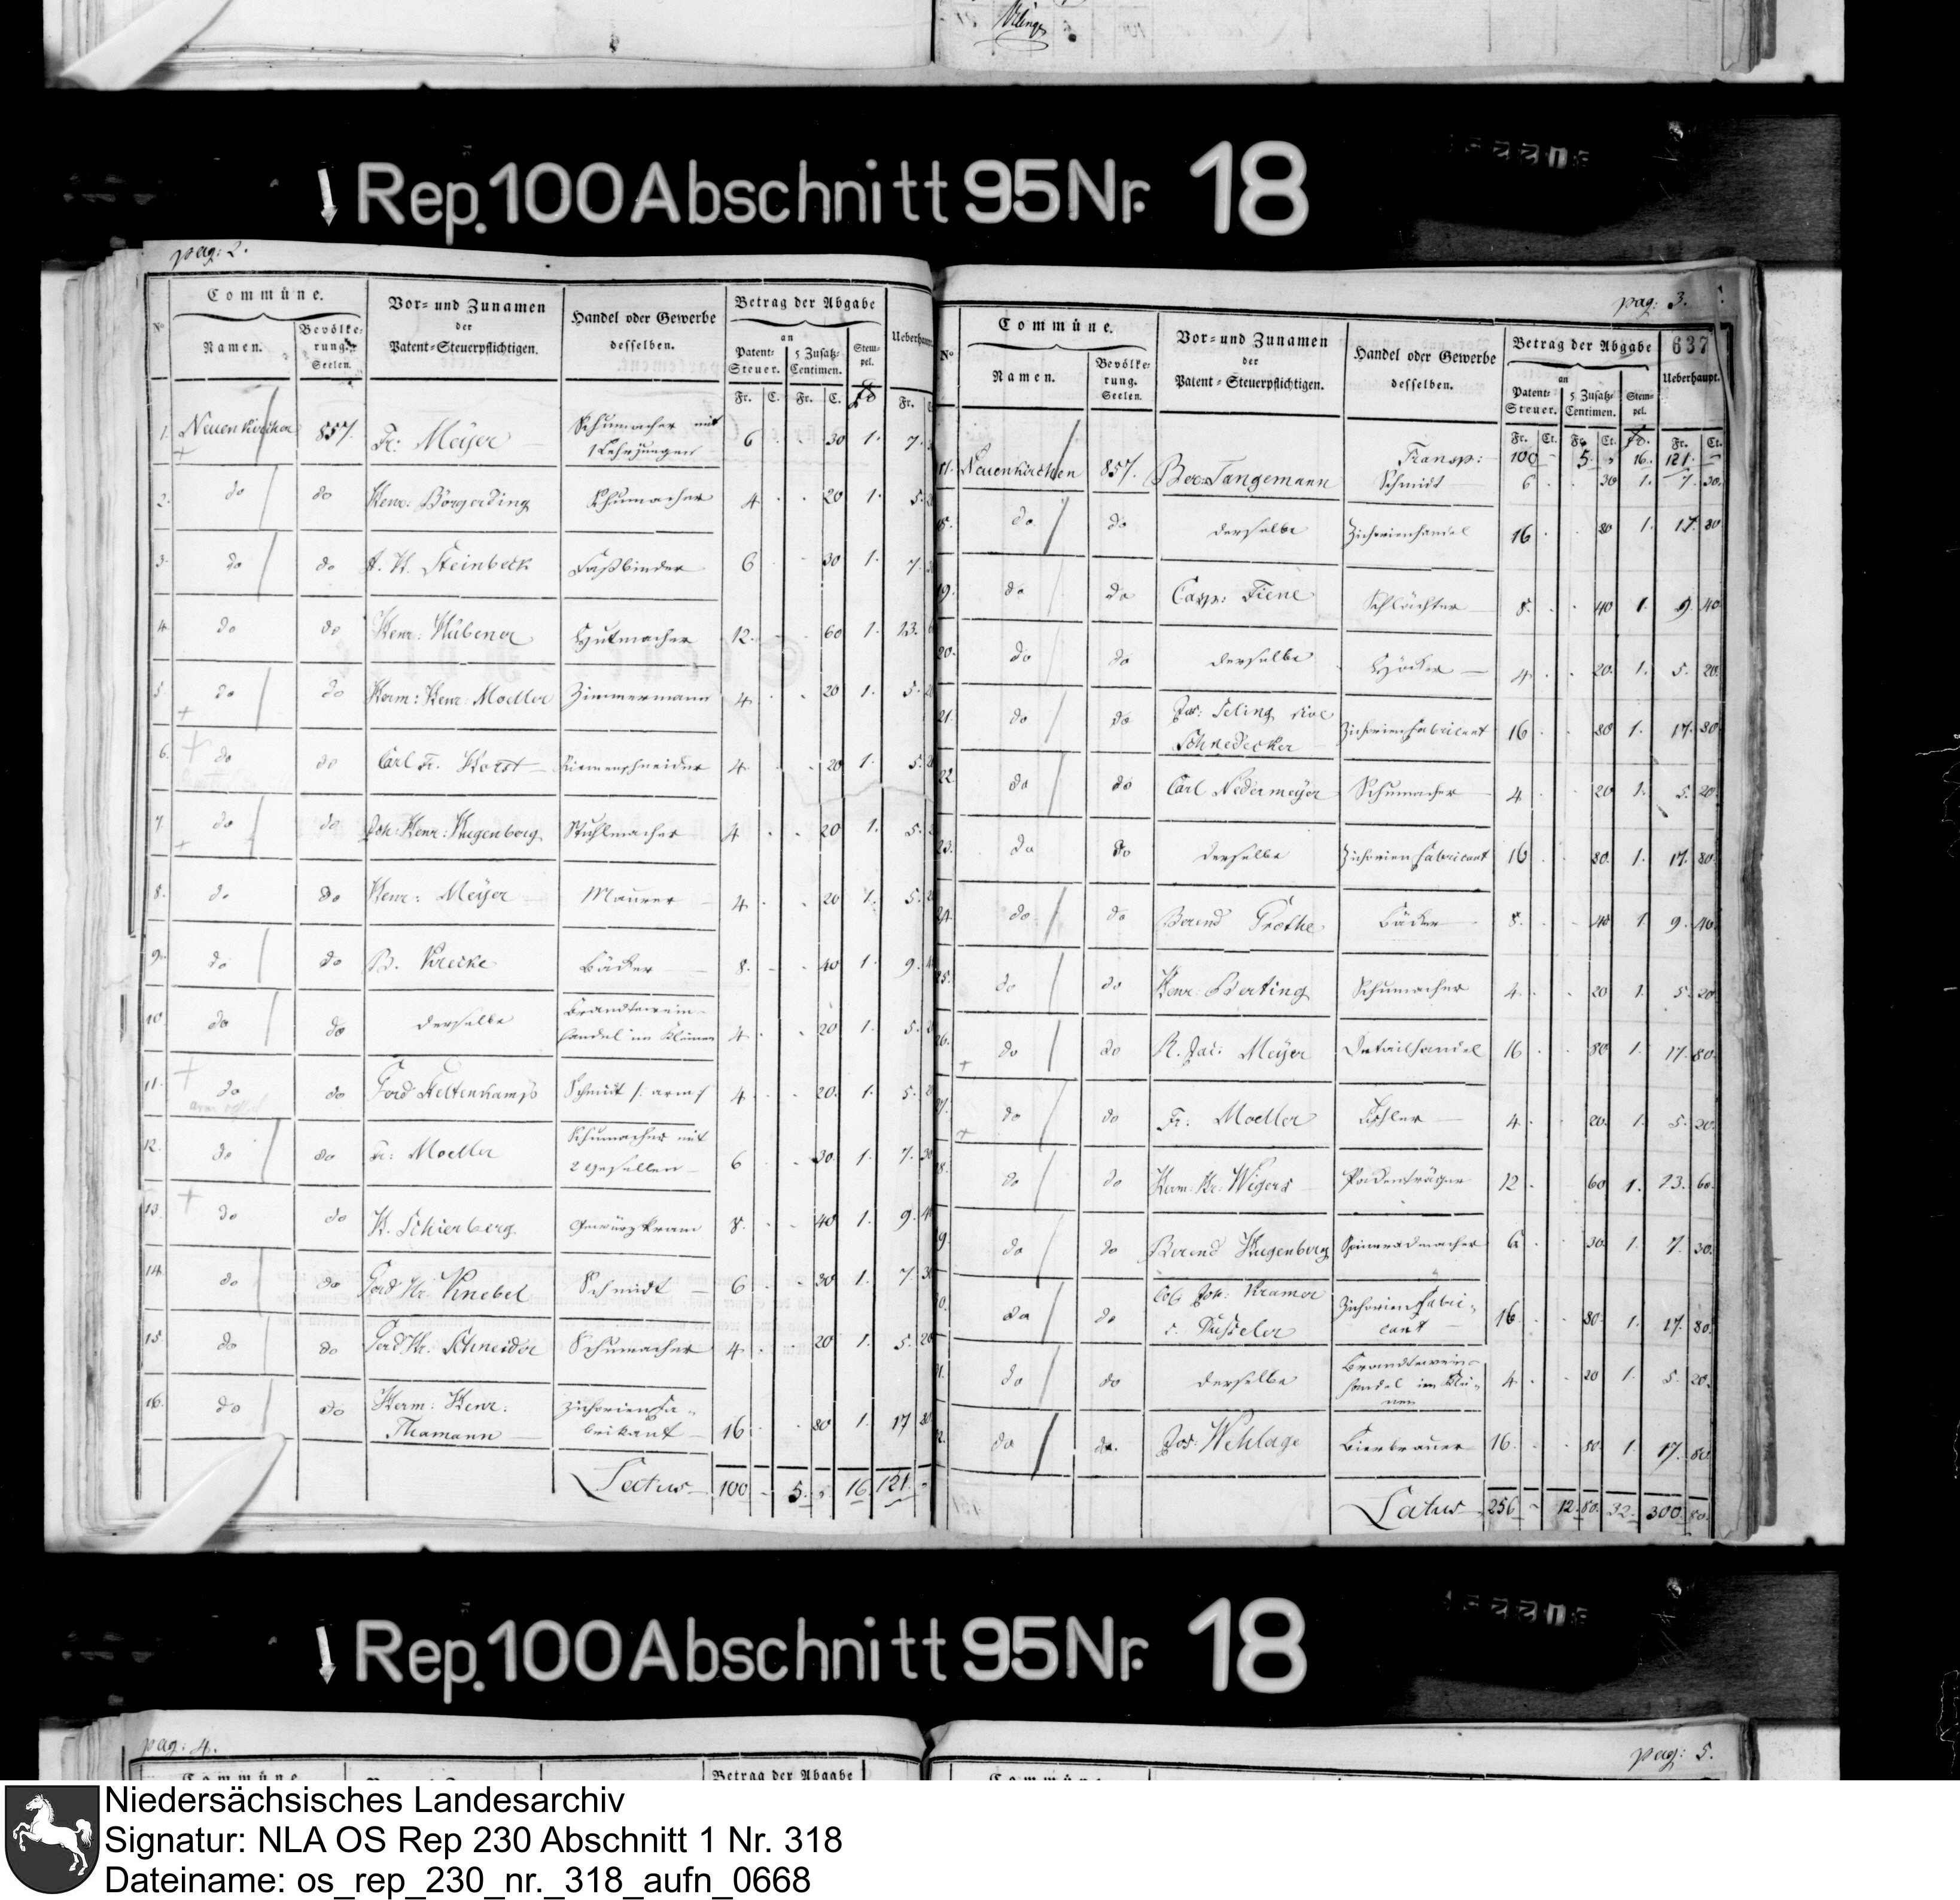 Rep. 100 Abschnitt 95 Nr. 18
pag: 2.
Commüne.
Vor- und Zunamen
der
Patent-Steuerpflichtigen.
Handel oder Gewerbe
desselben.
Betrag der Abgabe
an
Ueberhaupt
No
Namen.
Bevölke-
rung.
Seelen.
Patent-
Steuer.
5 Zusatz-
Centimen.
Stem-
pel.
Fr. C. Fr. C. Fr. Fr.
1. Neuenkirchen 857. Fr: Meyer Schumacher mit 1 Lehrjungen 6 30 1. 7.
2. do do Henr: Börgerding Schumacher 4 20 1. 5.
3. do do H. H. Steinbeck Faßbinder 6 30 1. 7.
4. do do Henr: Hübener Hutmacher 12. 60 1. 13.
5. do do Herm: Henr: Moeller Zimmermann 4 20 1. 5.
6. do do Carl Fr. Horst Riemenschneider 4. 20 1. 5.
7. do do Joh: Henr: Hugenberg Stuhlmacher 4. 20 1. 5.
8. do do Henr: Meyer Maurer 4. 20 1. 5.
9. do do B. Krecke Bäcker 8. 40 1. 9.
10 do do derselbe Brandtwein-
handel im Kleinen 4 20 1. 5.
11. do do Gerd Heltenkamp Schmidt /: arm / 4 20. 1. 5.
12. do do Fr: Moeller Schumacher mit
2 Gesellen 6 30 1. 7. 30
13. do do H. Schierberg Gewürzkram 8. 40 1. 9.
14. do do Gerd Hr. Knebel Schmidt 6 30 1. 7. 30
15. do do Gerd Hr: Schneider Schumacher 4 20 1. 5. 20
16. do do Herm: Henr:
Thamann Zichorienfa-
brikant 16 80 1. 17 80
Latus 100 5. 16 121.
pag: 3.
637
Commüne.
Vor- und Zunamen
der
Patent-Steuerpflichtigen.
Handel oder Gewerbe
desselben.
Betrag der Abgabe
an
Ueberhaupt.
No
Namen.
Bevölke-
rung.
Seelen.
Patent-
Steuer.
5 Zusatz-
Centimen.
Stem-
pel.
Fr. Ct. Fr. Ct. Fr. Fr. Ct.
Transp: 100 5. 16. 121.
Neuenkirchen 857. Ber: Tangemann Schmidt 6 30 1. 7. 30.
do do derselbe Zichorienhandel 16 80 1. 17. 80
19. do do Casp: Tiene Schlächter 8. 40 1. 9. 40
20. do do derselbe Höcker 4 20. 1. 5. 20.
21. do do Jos: Teling sive
Schnedecker Zichorienfabricant 16 80 1. 17. 80
22 do do Carl Nedermeyer Schumacher 4 20 1. 5. 20
23. do do derselbe Zichorienfabricant 16 80. 1. 17. 80.
24. do do Berend Grothe Bäcker 8. 40 1. 9. 40
25. do do Henr: Berting Schumacher 4. 20 1. 5 20
26. do do R. Jac: Meyer Detailhandel 16 80 1. 17. 80.
27. do do Fr: Moeller Tischler 4. 20. 1. 5. 20.
do do Herm: Hr: Wigers Packenträger 12 60 1. 13. 60.
do do Berend Hugenberg Spinnradmacher 6 30. 1. 7. 30.
do do Col: Joh: Kramer
s. Düsteler Zichorienfabri-
cant 16 80. 1. 17. 80.
do do derselbe Brandtwein-
handel im Klei-
nen 4. 20 1. 5. 20.
do do. Jos: Wehlage Bierbrauer 16. 80. 1 17. 80.
Latus 256 12. 80. 32. 300. 80.
Rep. 100 Abschnitt 95 Nr. 18
pag: 4.
pag: 5.
Commüne
Betrag der Abgabe
Commüne
Niedersächsisches Landesarchiv
Signatur: NLA OS Rep 230 Abschnitt 1 Nr. 318
Dateiname: os_rep_230_nr._318_aufn_0668